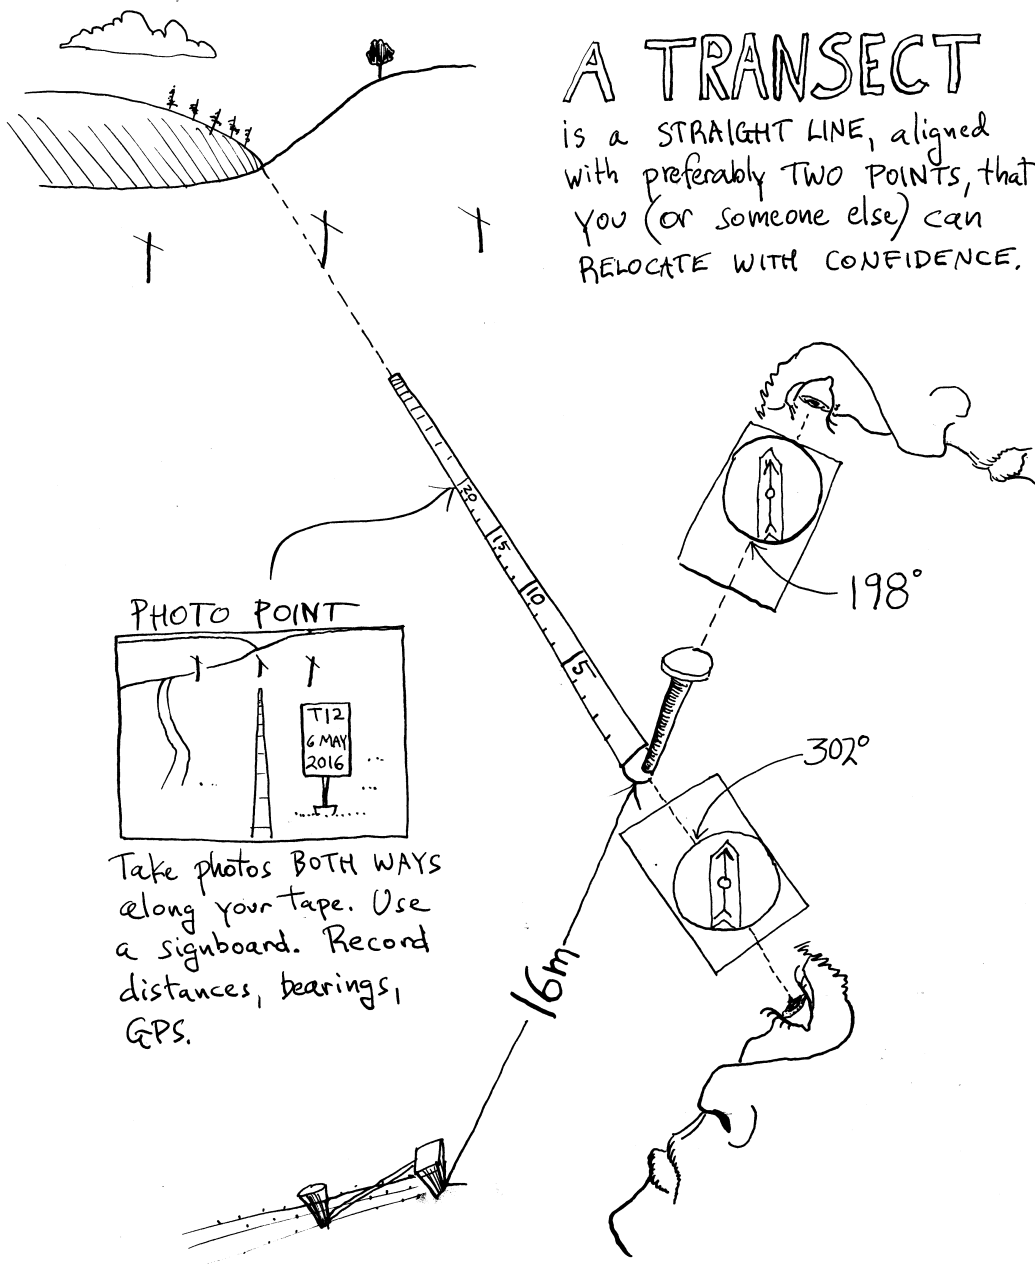 A TRANSECT
is a STRAIGHT LINE, aligned
with preferably TWO POINTS, that
you (or someone else) can
RELOCATE WITH CONFIDENCE.
198°
20
15
10
5
302°
PHOTO POINT
T12
6 MAY
2016
Take photos BOTH WAYS
along your tape. Use
a signboard. Record
distances, bearings,
GPS.
16m